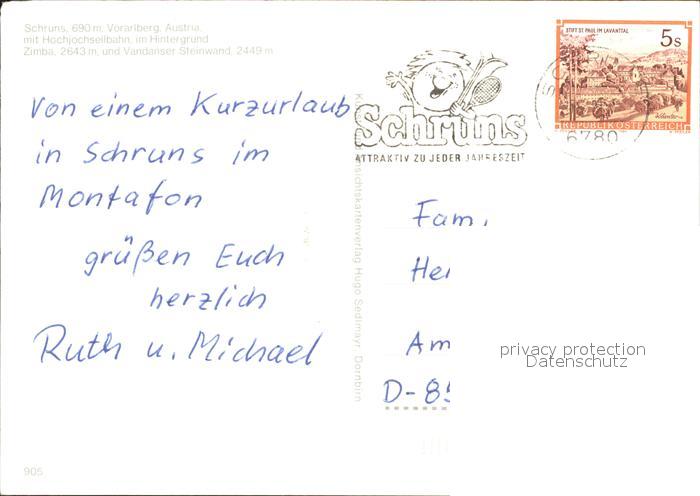 Schruns, 690 m, Vorarlberg, Austria,
mit Hochjochseilbahn, im Hintergrund
Zimba, 2643 m, und Vandanser Steinwand, 2449 m
Von einem Kurzurlaub
in Schruns im
Montafon
grüßen Euch
herzlich
Ruth u. Michael
905
Ansichtskartenverlag Hugo Sedlmayr, Dornbirn
Schruns
ATTRAKTIV ZU JEDER JAHRESZEIT
6780
STIFT ST. PAUL IM LAVANTTAL
5s
REPUBLIK ÖSTERREICH
Fam.
Hei
Am
D-85
privacy protection
Datenschutz